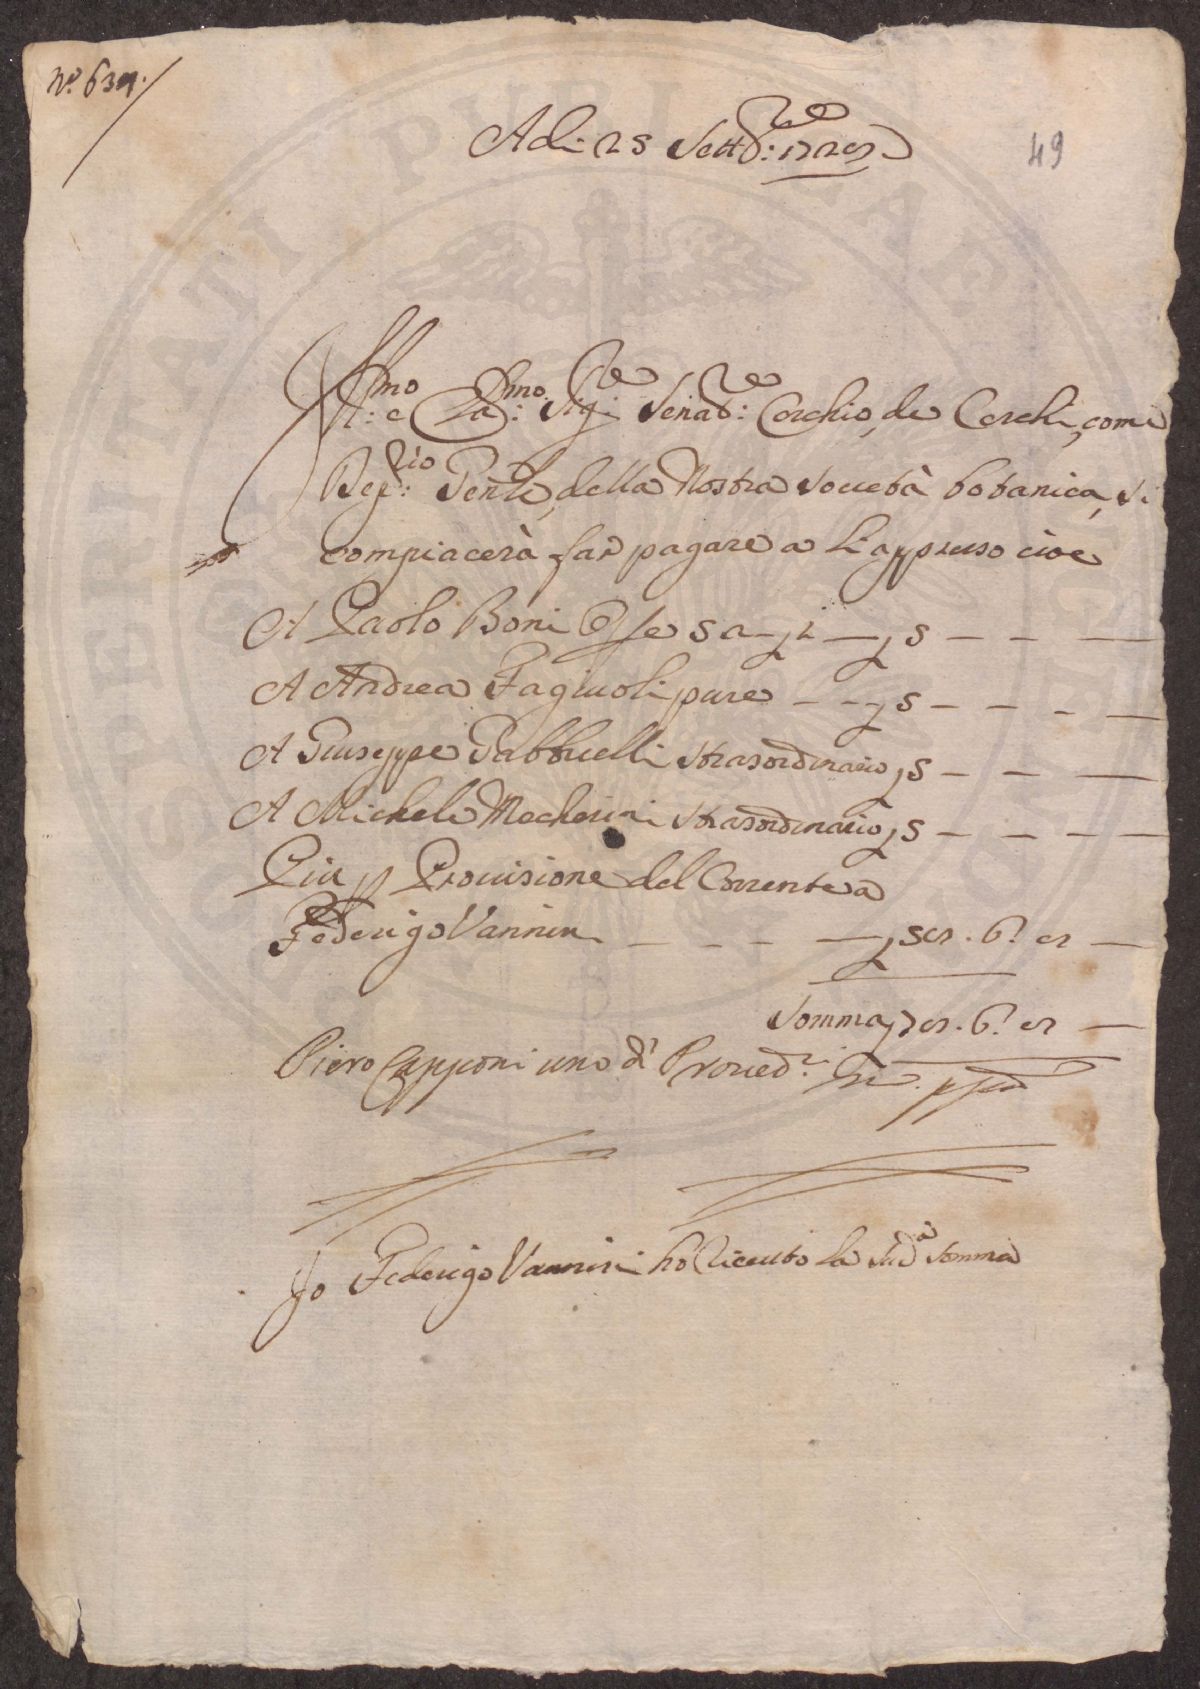 N.º 639.
Adi 25 Sett.re 1729
49
Ill.mo e Cla.mo Sig.re Senat.re Cerchio de Cerchi, come
Dep.rio Pen.te della Nostra Società botanica, si
compiacerà far pagare a li appresso cioè
A Paolo Boni Opre 5 a 1 — 5 — — —
A Andrea Fagiuoli pure — — 5 — — — —
A Giuseppe Gabbrielli strasordinario 5 — — —
A Michele Mecherini strasordinario 5 — — — —
Più p Provisione del Corrente a
Federigo Vannini — — — — 59. 6. 8 —
Somma 79. 6. 8 —
Piero Capponi uno de' Proved.ri
Io Federigo Vannini hò riceuto la sud.a somma